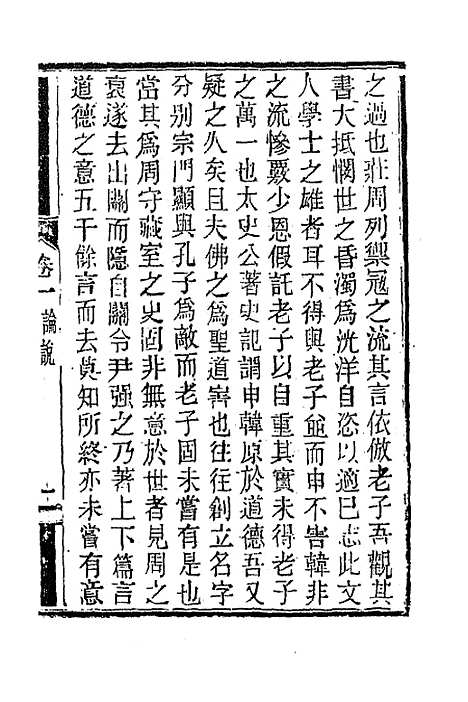 之過也莊周列禦冦之流其言依倣老子吾觀其
書大抵憫世之昏濁為洸洋自恣以適已志此文
人學士之雄者耳不得與老子竝而申不害韓非
之流慘覈少恩假託老子以自重其實未得老子
之萬一也太史公著史記謂申韓原於道德吾又
疑之久矣且夫佛之為聖道害也往往創立名字
分别宗門顯與孔子為敵而老子固未嘗有是也
當其為周守藏室之史固非無意於世者見周之
衰遂去出關而隱自關令尹强之乃著上下篇言
道德之意五千餘言而去莫知所終亦未嘗有意
卷一 論說
二